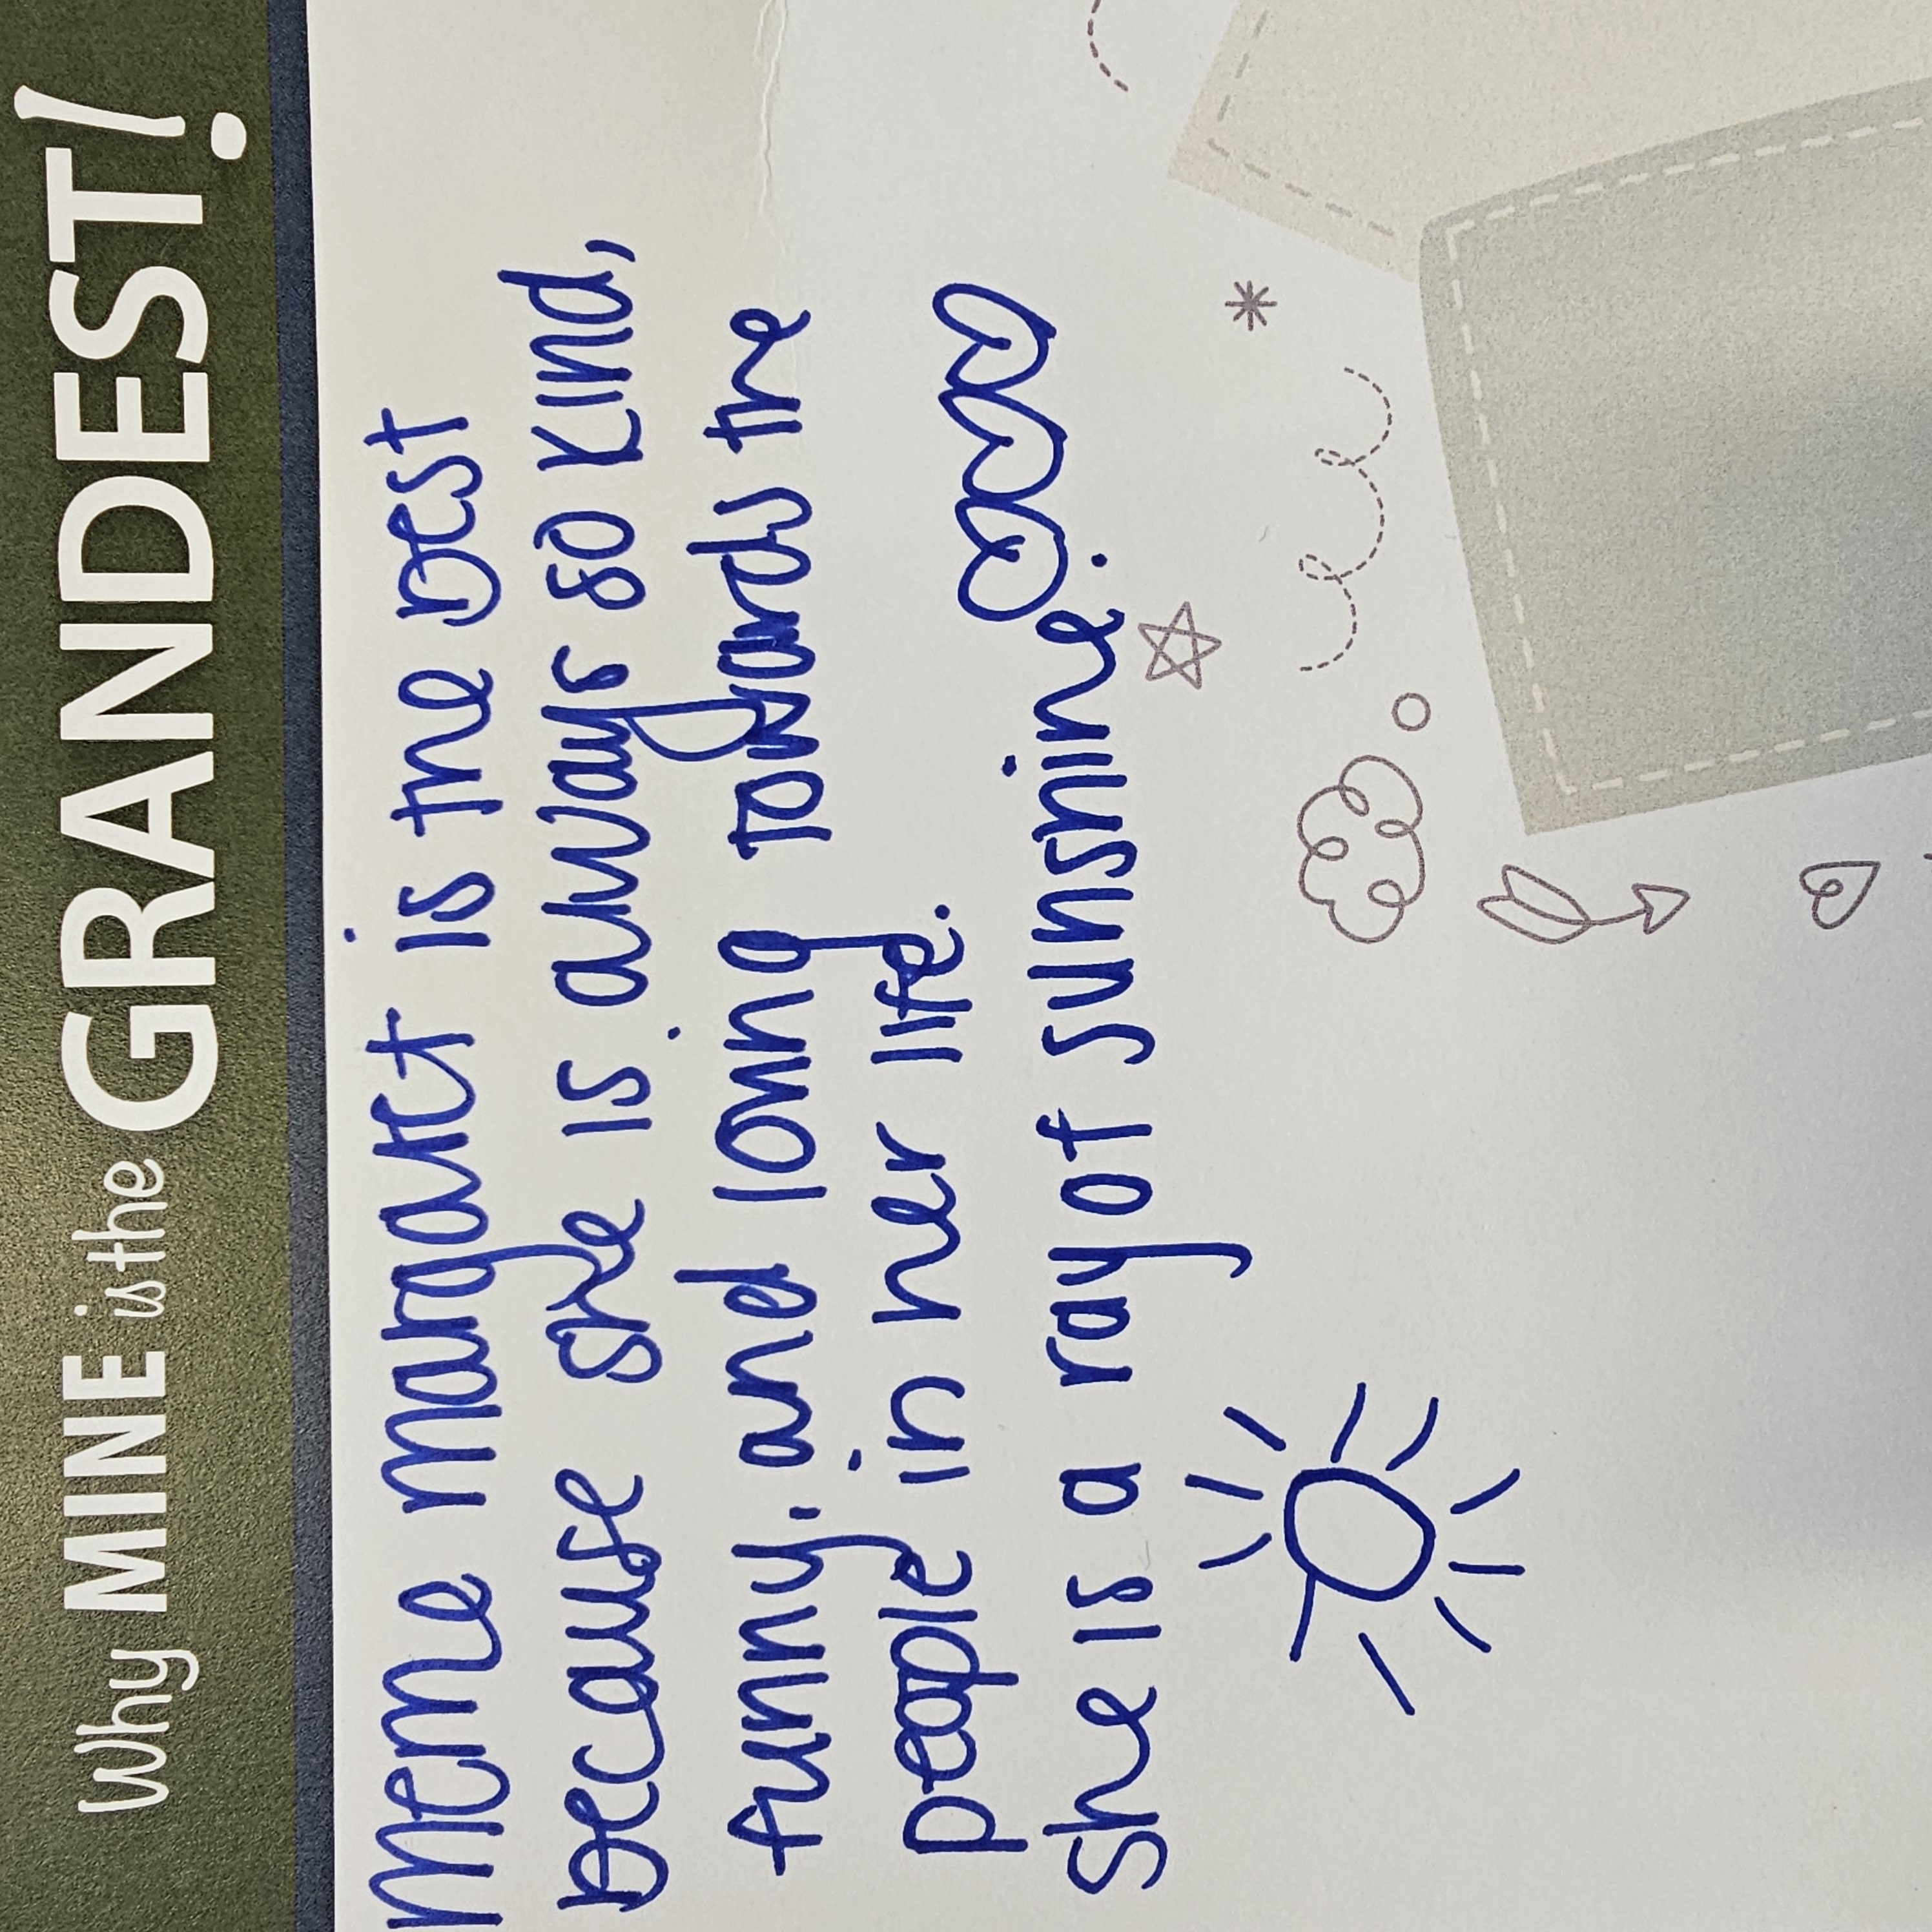 Why MINE is the GRANDEST!
meme margaret is the best
because she is always so kind,
funny, and loving towards the
people in her life.
She is a ray of sunshine.